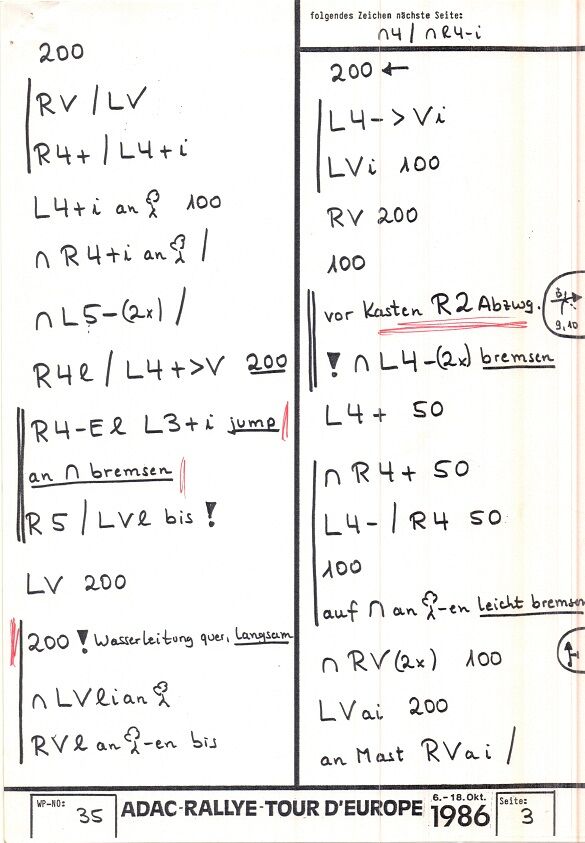 200
RV / LV
R4+ / L4+i
L4+i an 100
∩ R4+i an /
∩ L5-(2x) /
R4l / L4+>V 200
R4-El L3+i jump
an ∩ bremsen
R5 / LVl bis !
LV 200
200 ! Wasserleitung quer, Langsam
∩ LVlian
RVl an -en bis
folgendes Zeichen nächste Seite:
∩4 / ∩R4-i
200 ←
L4->Vi
LVi 100
RV 200
100
vor Kasten R2 Abzwg.
9,10
! ∩ L4-(2x) bremsen
L4+ 50
∩ R4+ 50
L4- / R4 50
100
auf ∩ an -en Leicht bremsen
∩ RV(2x) 100
LVai 200
an Mast RVai /
WP-NO: 35
ADAC-RALLYE-TOUR D'EUROPE 6.-18.Okt. 1986
Seite: 3